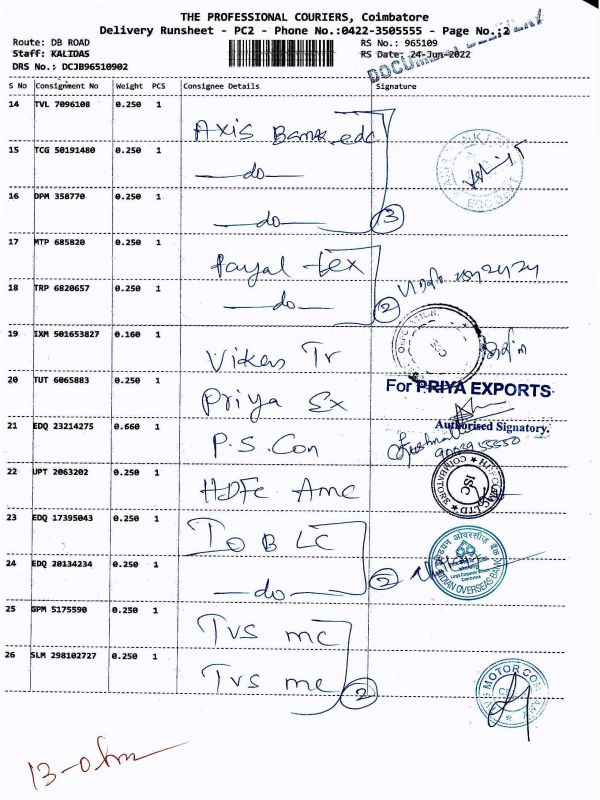 THE PROFESSIONAL COURIERS, Coimbatore
Delivery Runsheet - PC2 - Phone No.:0422-3505555 - Page No.:2
Route: DB ROAD RS No.: 965109
Staff: KALIDAS RS Date: 24-Jun-2022
DRS No.: DCJB96510902
DOCUMENT
S No Consignment No Weight PCS Consignee Details Signature
14 TVL 7096108 0.250 1 Axis Bank edc
15 TCG 50191480 0.250 1 —do—
16 DPM 358770 0.250 1 —do— 3
17 MTP 685820 0.250 1 Payal tex
18 TRP 6820657 0.250 1 —do— 2
19 IXM 501653827 0.160 1 Vikas Tr
20 TUT 6065883 0.250 1 Priya Ex
For PRIYA EXPORTS
Authorised Signatory.
21 EDQ 23214275 0.660 1 P.S. Con
22 UPT 2063202 0.250 1 HDFC Amc
ISC
COIMBATORE
23 EDQ 17395043 0.250 1 IOB LC
24 EDQ 20134234 0.250 1 —do— 2
INDIAN OVERSEAS BANK
25 GPM 5175590 0.250 1 TVS mc
26 SLM 298102727 0.250 1 TVS mc 2
MOTOR COMPANY